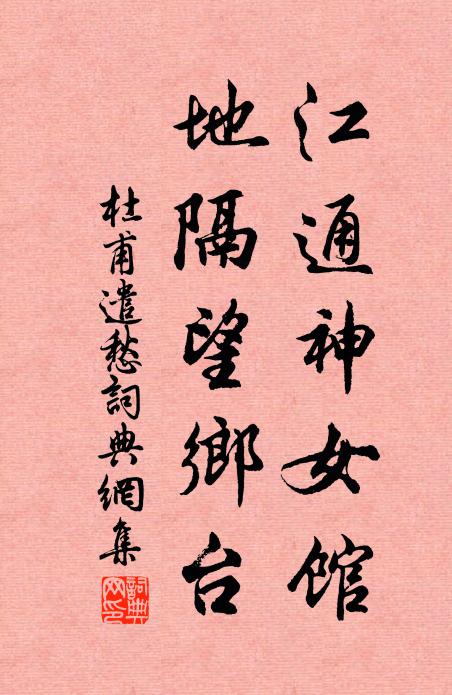 江通神女馆
地隔望鄉台
杜甫遣愁詞典網集
詞典网印